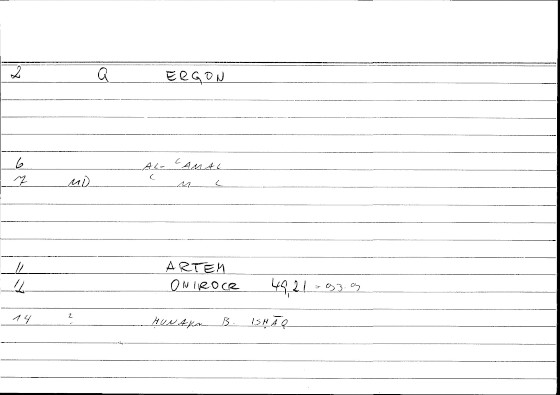 2 Q ERGON
6 AL-ʿAMAL
7 MD ʿ M L
11 ARTEM
12 ONIROCR 49,21 - 93.9
14 ? ḤUNAYN B. ISḤĀQ